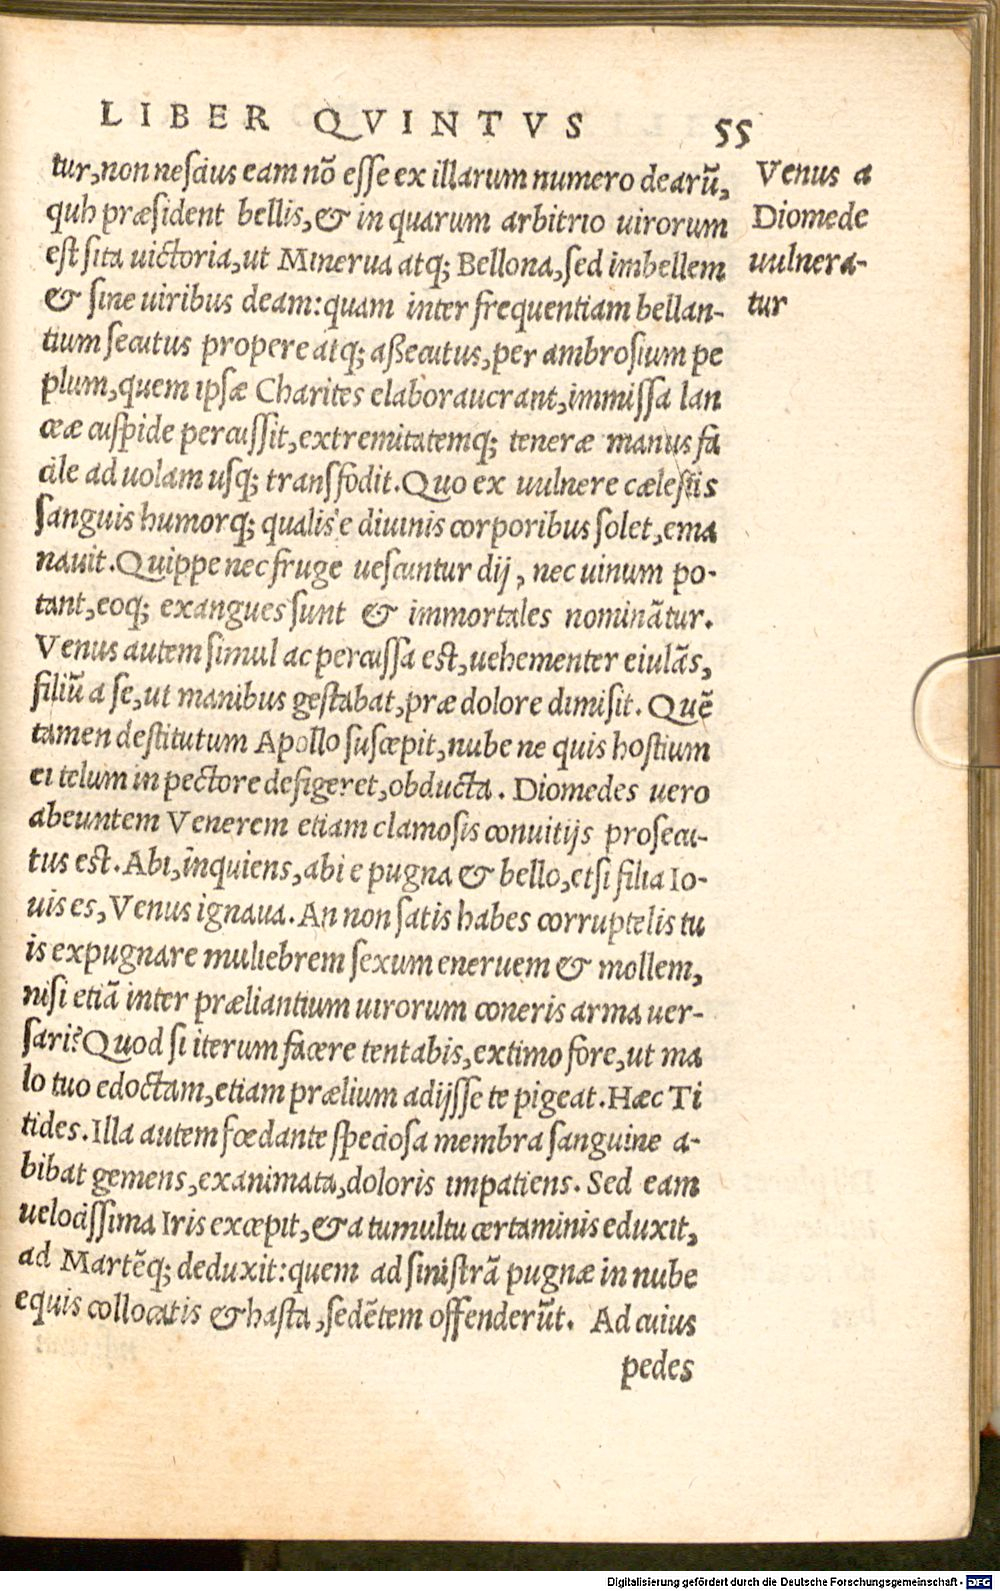 LIBER QVINTVS 55
tur, non nescius eam nõ esse ex illarum numero dearũ,
quæ præsident bellis, & in quarum arbitrio uirorum
est sita uictoria, ut Minerua atq; Bellona, sed imbellem
& sine uiribus deam: quam inter frequentiam bellan-
tium secutus propere atq; aßecutus, per ambrosium pe
plum, quem ipsæ Charites elaborauerant, immissa lan
ceæ cuspide percussit, extremitatemq; teneræ manus fa
cile ad uolam usq; transfodit. Quo ex uulnere cælestis
sanguis humorq; qualis e diuinis corporibus solet, ema
nauit. Quippe nec fruge uescuntur dij, nec uinum po-
tant, eoq; exangues sunt & immortales nominãtur.
Venus autem simul ac percussa est, uehementer eiulãs,
filiũ a se, ut manibus gestabat, præ dolore dimisit. Quẽ
tamen destitutum Apollo suscepit, nube ne quis hostium
ei telum in pectore defigeret, obducta. Diomedes uero
abeuntem Venerem etiam clamosis conuitijs prosecu-
tus est. Abi, inquiens, abi e pugna & bello, etsi filia Io-
uis es, Venus ignaua. An non satis habes corruptelis tu
is expugnare muliebrem sexum eneruem & mollem,
nisi etiã inter præliantium uirorum coneris arma uer-
sari? Quod si iterum facere tentabis, extimo fore, ut ma
lo tuo edoctam, etiam prælium adijsse te pigeat. Hæc Ti
tides. Illa autem fœdante speciosa membra sanguine a-
bibat gemens, exanimata, doloris impatiens. Sed eam
uelocissima Iris excepit, & a tumultu certaminis eduxit,
ad Martẽq; deduxit: quem ad sinistrã pugnæ in nube
equis collocatis & hasta, sedẽtem offenderũt. Ad cuius
pedes
Venus a
Diomede
uulnera-
tur
Digitalisierung gefördert durch die Deutsche Forschungsgemeinschaft - DFG